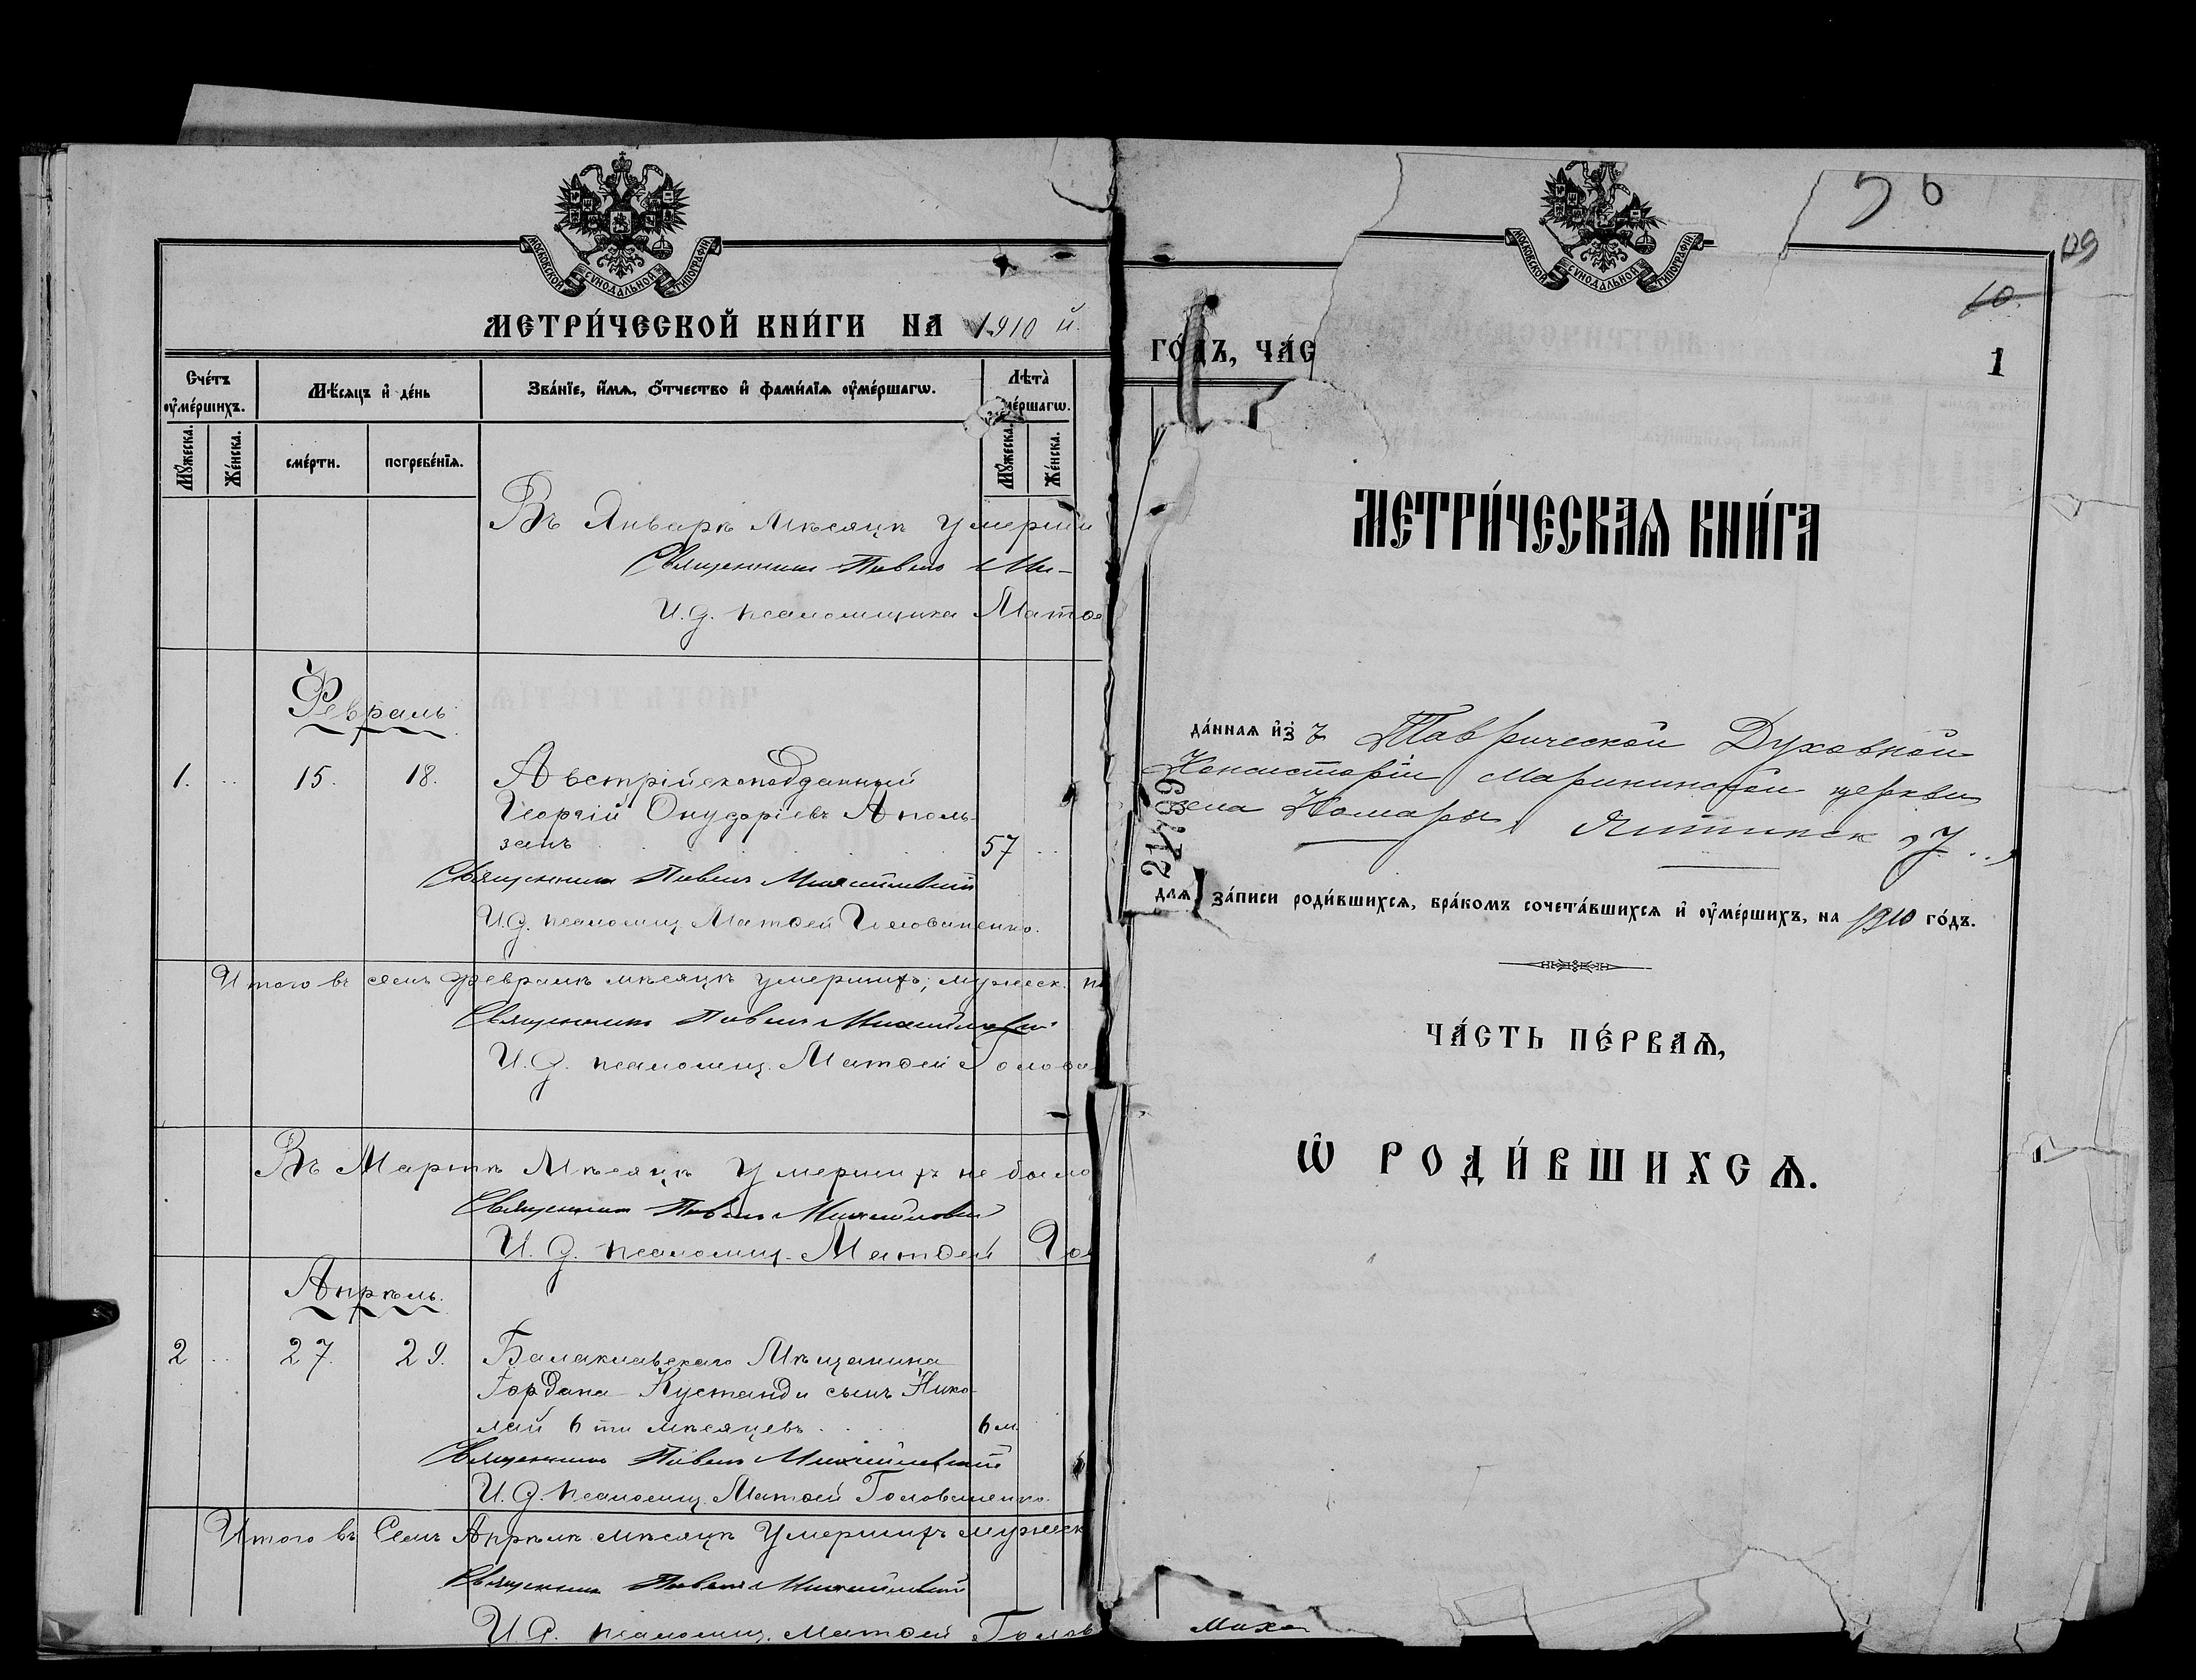 МОСКОВСКОЙ СѴНОДАЛЬНОЙ ТИПОГРАФІИ
МЕТРИ́ЧЕСКОЙ КНИ́ГИ НА 1910 й.
Сче́тъ ᲂу҆ме́ршихъ.
Мѣ́сяцъ и҆ де́нь
Зва́нїе, и҆́мѧ, ѻ҆́тчество и҆ фами́лїѧ ᲂу҆ме́ршагѡ.
Лѣта̀ ме́ршагѡ.
Мꙋ́жеска.
Же́нска.
сме́рти.
погребе́нїѧ.
Мꙋ́жеска.
Же́нска.
Въ Январѣ Мѣсяцѣ Умерши
Священникъ Павелъ Ми-
И.д. псаломщика Матѳе
Февраль
1. .. 15. 18. Австрійскоподданный
Георгій Онуфріевъ
зенъ 57 ..
Священникъ Павелъ Михайловскій
И.д. псаломщ. Матѳей Головченко.
Итого въ семъ Февралѣ мѣсяцѣ умершихъ; мужеск. п
Священникъ Павелъ Михайловскій
И.д. псаломщ. Матѳей Голов
Въ Мартѣ Мѣсяцѣ Умершихъ не было
Священникъ Павелъ Михайловскій
И.д. псаломщ. Матѳей Гол
Апрѣль.
2 .. 27. 29. Балаклавскаго Мѣщанина
Іордана Кустанди сынъ Нико-
лай 6ти мѣсяцевъ 6 м.
Священникъ Павелъ Михайловскій
И.д. псаломщ. Матѳей Головченко.
Итого въ Семъ Апрѣлѣ мѣсяцѣ Умершихъ мужеск
Священникъ Павелъ Михайловскій
И.д. псаломщ. Матѳей Голов
56
109
10.
1
МОСКОВСКОЙ СѴНОДАЛЬНОЙ ТИПОГРАФІИ
ГО́ДЪ, ЧА́С
МЕТРИ́ЧЕСКАѦ КНИ́ГА
да́ннаѧ и҆зъ Таврической Духовной
Консисторіи Марининской церкви
села Комары, Ялтинск. У...
21789
длѧ за́писи роди́вшихсѧ, бра́комъ сочета́вшихсѧ и҆ ᲂу҆ме́ршихъ, на 1910 го́дъ.
ЧА́СТЬ ПЕ́РВАѦ,
Ѡ҆ РОДИ́ВШИХСѦ.
Миха